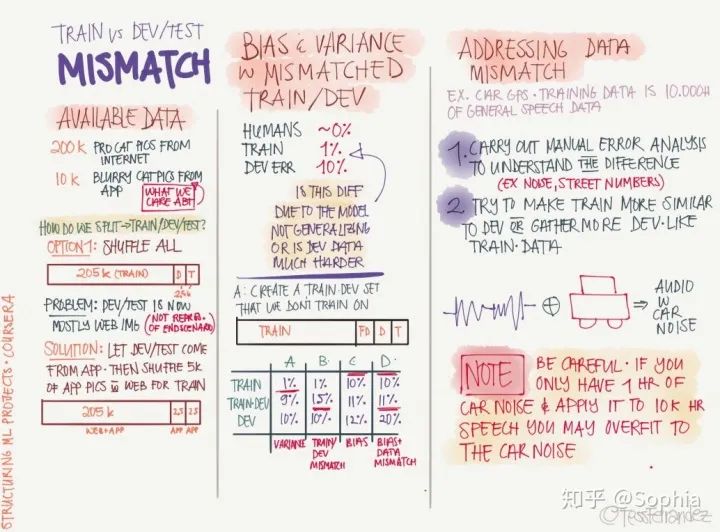 TRAIN VS DEV/TEST
MISMATCH
AVAILABLE DATA
200 K PRO CAT PICS FROM
INTERNET
10 K BLURRY CAT PICS FROM
APP
WHAT WE
CARE ABT
HOW DO WE SPLIT → TRAIN/DEV/TEST?
OPTION 1: SHUFFLE ALL
205 K (TRAIN) D T
PROBLEM: DEV/TEST IS NOW
MOSTLY WEB IMG (NOT REPR.
OF END SCENARIO)
SOLUTION: LET DEV/TEST COME
FROM APP. THEN SHUFFLE 5K
OF APP PICS W WEB FOR TRAIN
205 K 2.5 2.5
WEB+APP APP APP
STRUCTURING ML PROJECTS • COURSERA
BIAS & VARIANCE
W MISMATCHED
TRAIN/DEV
HUMANS ~0%
TRAIN 1%
DEV ERR 10%
IS THIS DIFF
DUE TO THE MODEL
NOT GENERALIZING
OR IS DEV DATA
MUCH HARDER
A: CREATE A TRAIN-DEV SET
THAT WE DON'T TRAIN ON
TRAIN D D T
A B C D
TRAIN 1% 1% 10% 10%
TRAIN-DEV 9% 1.5% 11% 11%
DEV 10% 10% 12% 20%
VARIANCE TRAIN/ BIAS BIAS+
DEV DATA
MISMATCH MISMATCH
ADDRESSING DATA
MISMATCH
EX. CAR GPS • TRAINING DATA IS 10.000H
OF GENERAL SPEECH DATA
1. CARRY OUT MANUAL ERROR ANALYSIS
TO UNDERSTAND THE DIFFERENCE
(EX NOISE, STREET NUMBERS)
2. TRY TO MAKE TRAIN MORE SIMILAR
TO DEV OR GATHER MORE DEV-LIKE
TRAIN-DATA
⊕ ⇒ AUDIO
W
CAR
NOISE
NOTE BE CAREFUL • IF YOU
ONLY HAVE 1 HR OF
CAR NOISE & APPLY IT TO 10K HR
SPEECH YOU MAY OVERFIT TO
THE CAR NOISE
知乎 @Sophia